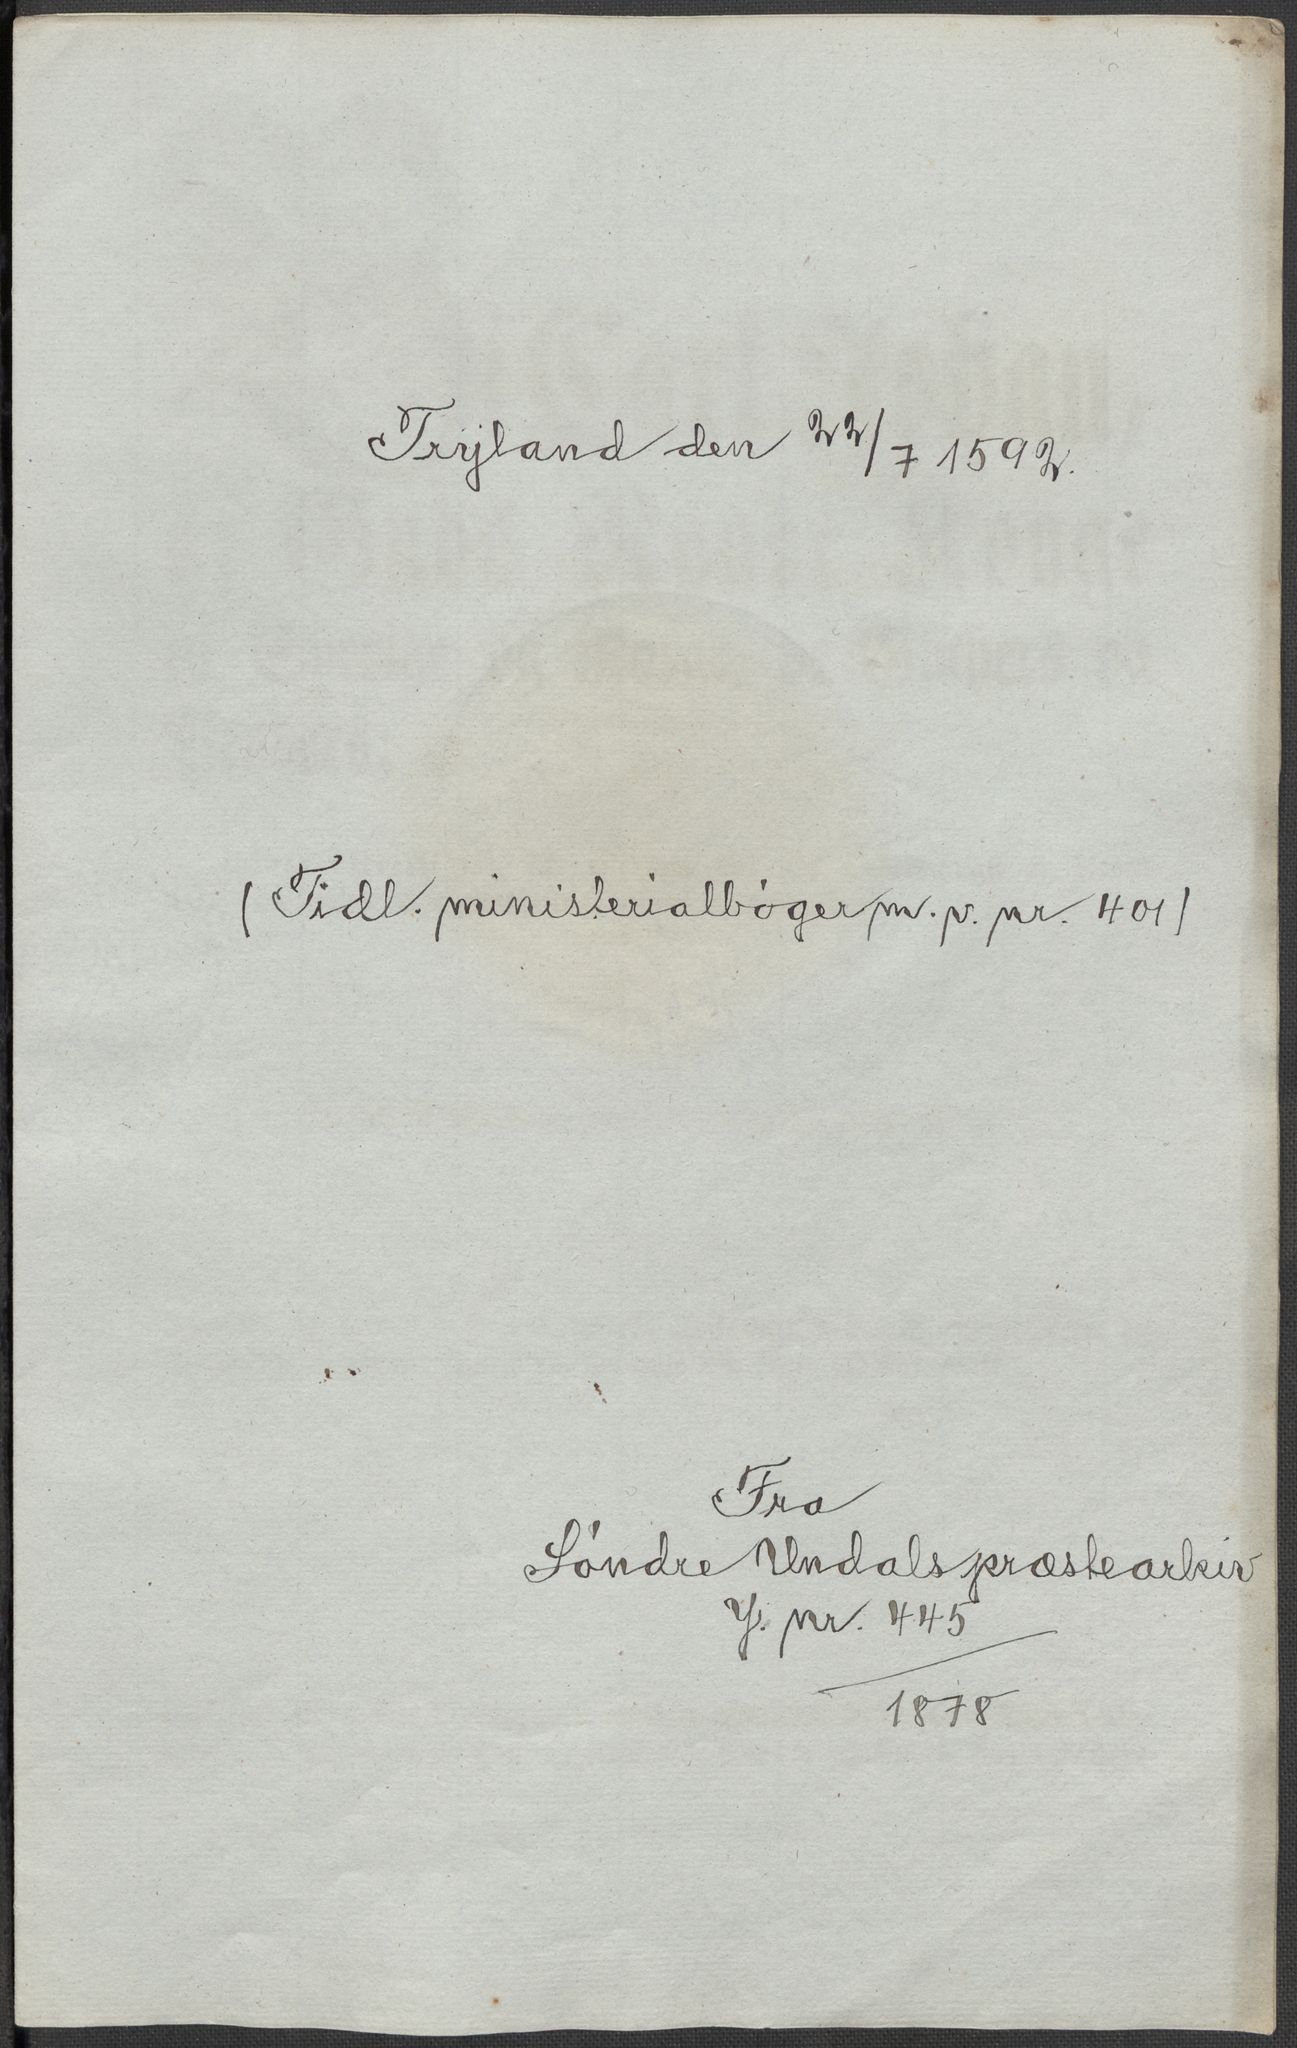 Trÿland den 22/7 1592.
(Tidl. ministerialbóger m. v. nr. 401)
Fra
Söndre Undals præstearkiv
J. nr. 445
1878